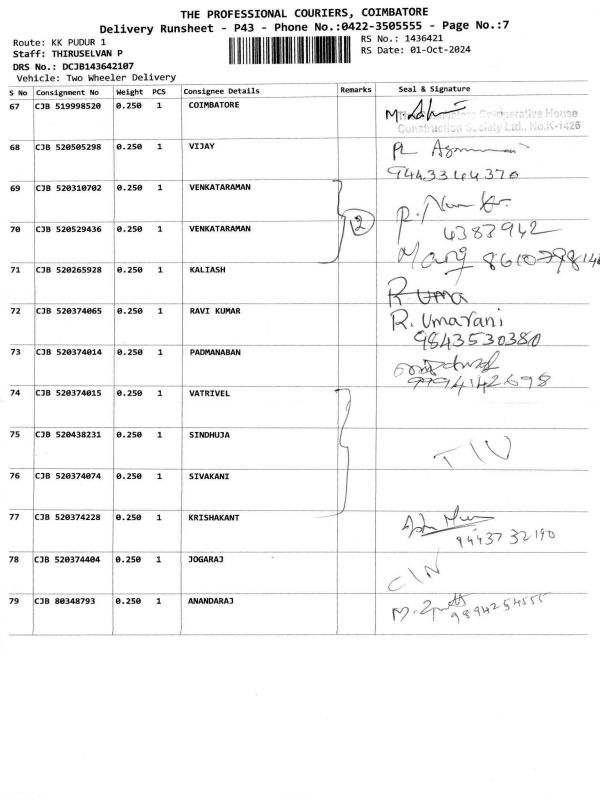 THE PROFESSIONAL COURIERS, COIMBATORE
Delivery Runsheet - P43 - Phone No.:0422-3505555 - Page No.:7
Route: KK PUDUR 1
RS No.: 1436421
Staff: THIRUSELVAN P
RS Date: 01-Oct-2024
DRS No.: DCJB143642107
Vehicle: Two Wheeler Delivery
S No Consignment No Weight PCS Consignee Details Remarks Seal & Signature
67 CJB 519998520 0.250 1 COIMBATORE
Cooperative House
Construction Society Ltd., No.K-1426
68 CJB 520505298 0.250 1 VIJAY
9443344370
69 CJB 520310702 0.250 1 VENKATARAMAN
2
70 CJB 520529436 0.250 1 VENKATARAMAN
4383942
71 CJB 520265928 0.250 1 KALIASH
R Uma
72 CJB 520374065 0.250 1 RAVI KUMAR
R. Umarani
9843530380
73 CJB 520374014 0.250 1 PADMANABAN
9994142698
74 CJB 520374015 0.250 1 VATRIVEL
75 CJB 520438231 0.250 1 SINDHUJA
TIV
76 CJB 520374074 0.250 1 SIVAKANI
77 CJB 520374228 0.250 1 KRISHAKANT
9443732190
78 CJB 520374404 0.250 1 JOGARAJ
CIN
79 CJB 80348793 0.250 1 ANANDARAJ
9894254555